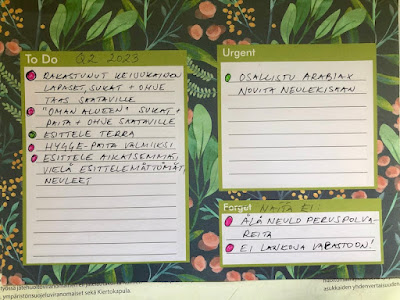 To Do Q2 2023
RAKASTUNUT KEIJUKAINEN
LAPASET, SUKAT + OHJE
TAAS SAATAVILLE
"OMAN ALUEEN" SUKAT +
PAITA + OHJE SAATAVILLE
ESITTELE TERRA
HYGGE-PAITA VALMIIKSI
ESITTELE AIKAISEMMAT,
VIELÄ ESITTELEMÄTTÖMÄT,
NEULEET
Urgent
OSALLISTU ARABIAN
NOVITA NEULEKISAAN
Forget NÄITÄ EI
ÄLÄ NEULO PERUSPOLVA-
REITA
EI LANKOJA VARASTOON!
ympäristönsuojeluviranomaiset sekä Kiertokapula.
asukkaiden yhdenvertaisuuden